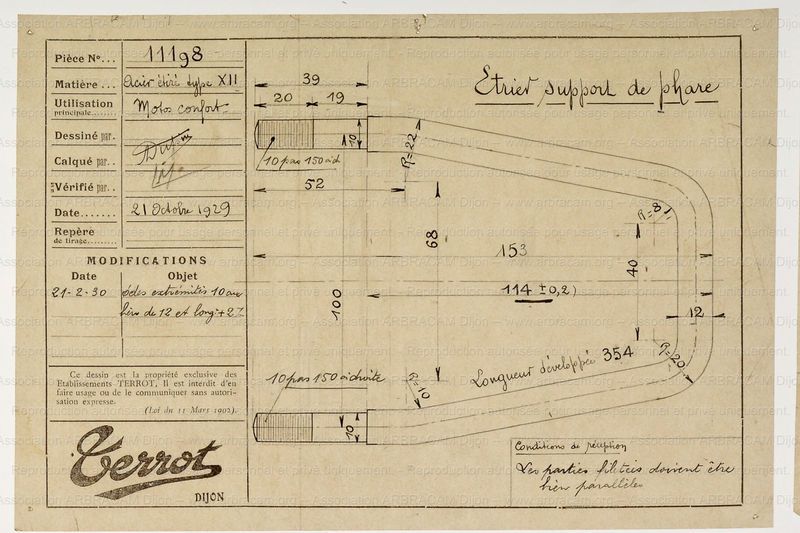 Pièce No... 11198
Matière... Acier étiré type XII
Utilisation
principale........ Motos confort
Dessiné par.
Calqué par..
Vérifié par..
Date....... 21 Octobre 1929
Repère
de tirage.........
MODIFICATIONS
Date Objet
21-2-30 des extrémités 10 au
lieu de 12 et long + 2
Ce dessin est la propriété exclusive des
Etablissements TERROT, Il est interdit d'en
faire usage ou de le communiquer sans autori-
sation expresse.
(Loi du 11 Mars 1902).
Terrot
DIJON
Etrier support de phare
39
20 19
10
10 pas 150 à d
52
R=22
R=8
68
153
40
114 ± 0,2
100
12
Longueur développée 354
R=20
10 pas 150 à droite
R=10
10
Conditions de réception
Les parties filetées doivent être
bien parallèles